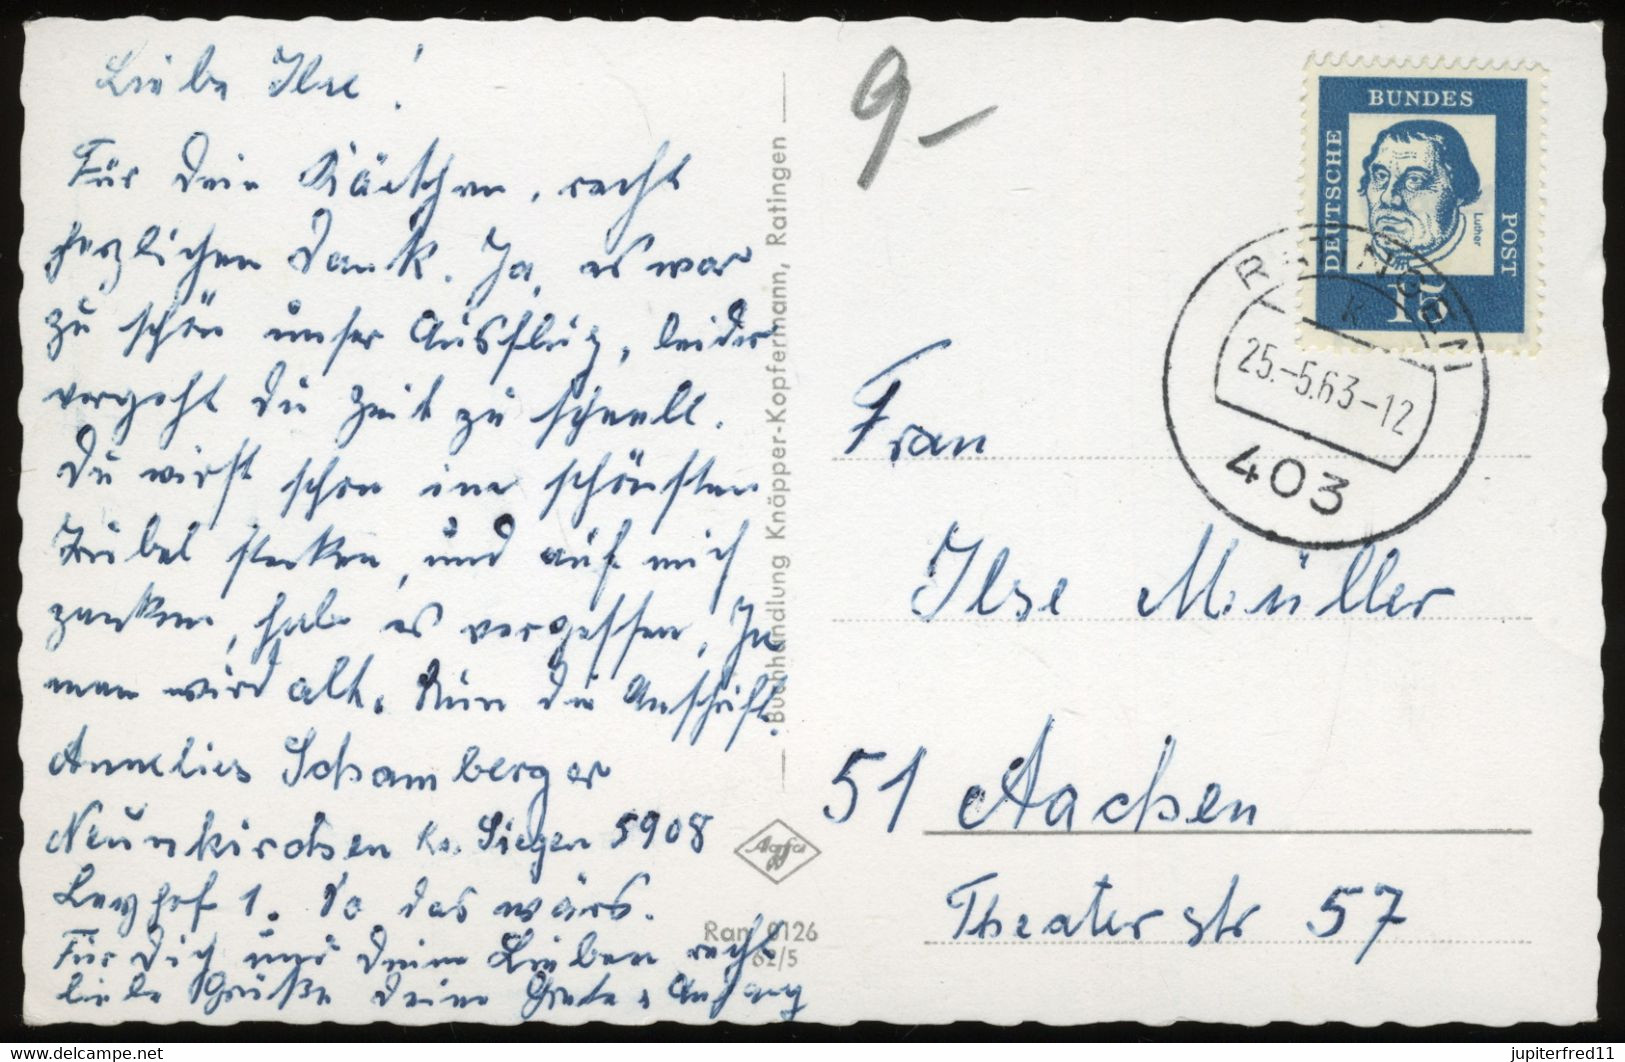 Liebe Ilse!
Für Dein Kärtchen, recht
herzlichen Dank. Ja, es war
zu schön unser Ausflug, leider
vergeht die Zeit zu schnell.
Du wirst schon im schönsten
Trubel stecken, und auf mich
zanken, habe es vergessen, Ja
man wird alt. Nun die Anschrift.
Annelies Schamberger
Neunkirchen Kr. Siegen 5908
Leyhof 1. So das wärs.
Für Dich und Deine Lieben recht
liebe Grüße Deine Grete
Buchhandlung Knöpper-Kopfermann, Ratingen
Agfa
Ran 9126
62/5
9-
DEUTSCHE
BUNDES
POST
Luther
15
RATINGEN
K
25.-5.63-12
403
Frau
Ilse Müller
51 Aachen
Theaterstr 57
jupiterfred11
www.delcampe.net